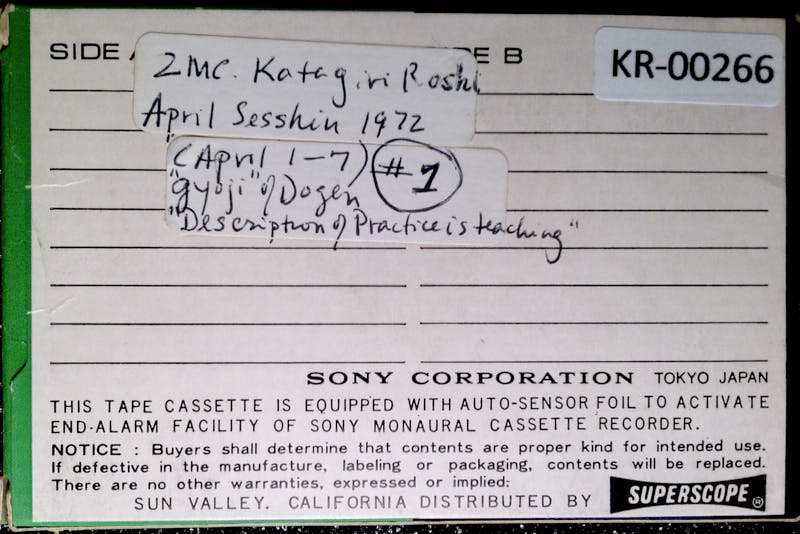 SIDE A
DE B
KR-00266
ZMC. Katagiri Roshi
April Sesshin 1972
(April 1-7) #1
"gyoji" of Dogen
"Description of Practice is teaching"
SONY CORPORATION TOKYO JAPAN
THIS TAPE CASSETTE IS EQUIPPED WITH AUTO-SENSOR FOIL TO ACTIVATE
END-ALARM FACILITY OF SONY MONAURAL CASSETTE RECORDER.
NOTICE : Buyers shall determine that contents are proper kind for intended use.
If defective in the manufacture, labeling or packaging, contents will be replaced.
There are no other warranties, expressed or implied:
SUN VALLEY. CALIFORNIA DISTRIBUTED BY SUPERSCOPE®